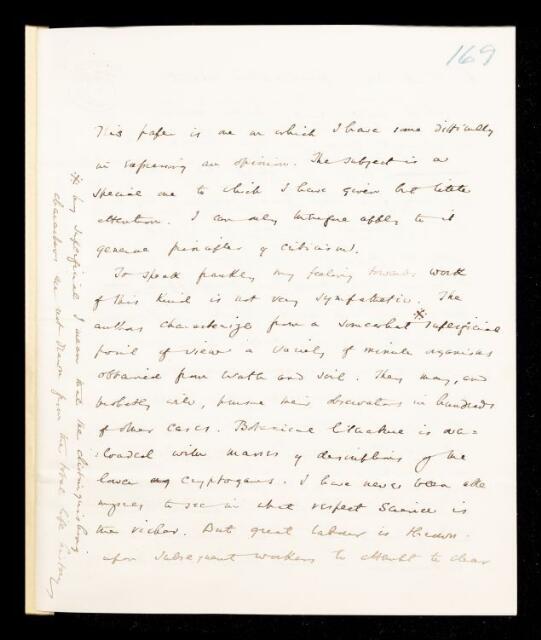 169
This paper is one on which I have some difficulty
in expressing an opinion. The subject is a
special one to which I have given but little
attention. I can only therefore apply to it
general principles of criticism.
To speak frankly my feeling towards work
of this kind is not very sympathetic. The
author characterizes from a somewhat * superficial
point of view a variety of minute organisms
obtained from water and soil. They may, and
probably will, pursue their observations in hundreds
of other cases. Botanical literature is over-
loaded with masses of descriptions of the
lower cryptogams. I have never been able
myself to see in what respect Science is
the richer. But great labour is thrown
upon subsequent workers to attempt to clear
* by superficial I mean that the distinguishing
characters are not drawn from the total life history